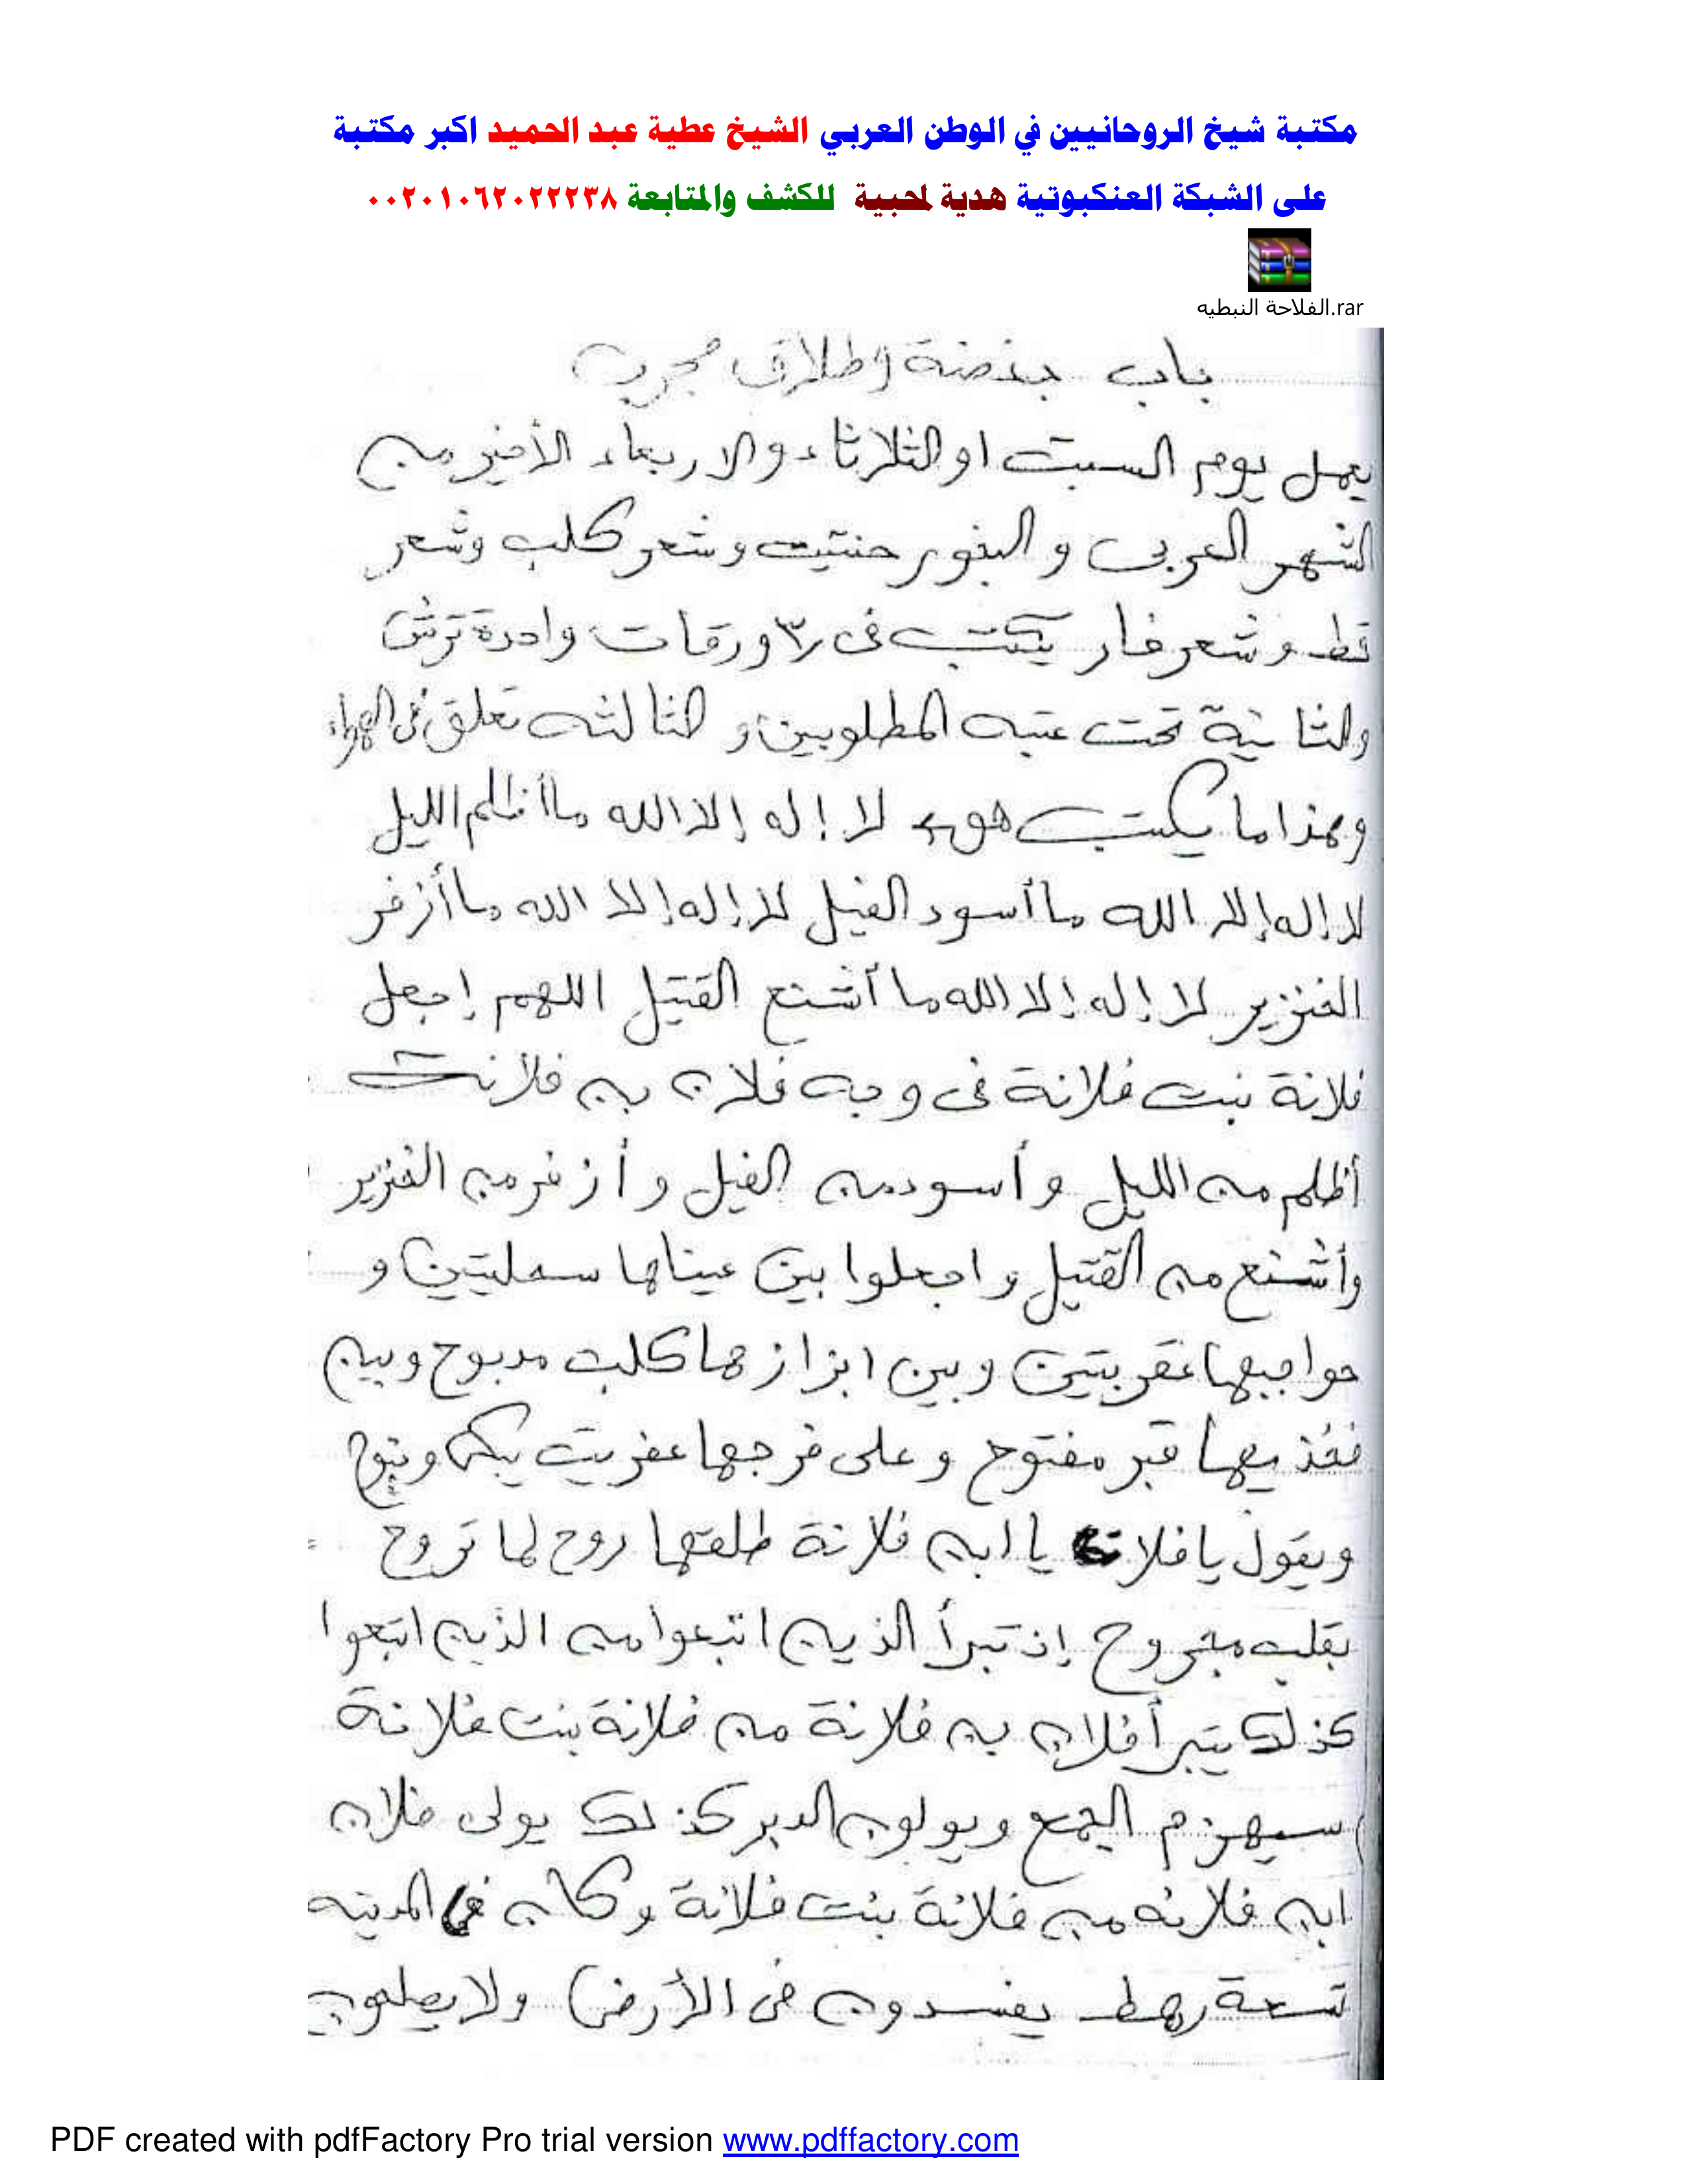 مكتبة شيخ الروحانيين في الوطن العربي الشيخ عطية عبد الحميد اكبر مكتبة
على الشبكة العنكبوتية هدية لمحبية للكشف والمتابعة ٠٠٢٠١٠٦٢٠٢٢٢٣٨
الفلاحة النبطيه.rar
باب بغضة وطلاق مجرب
يعمل يوم السبت او الثلاثاء والاربعاء الأخير من
الشهر العربى و البخور حنتيت وشعر كلب وشعر
قط وشعر فار يكتب فى ٣ ورقات واحدة ترش
والثانية تحت عتبه المطلوبين و الثالثه تعلق فى الهواء
وهذا ما يكتب هو لا إله إلا الله ما أظلم الليل
لا إله إلا الله ما أسود الفيل لا إله إلا الله ما أزفر
الخنزير لا إله إلا الله ما أشنع القتيل اللهم إجعل
فلانة بنت فلانة فى وجه فلان بن فلانت
أظلم من الليل و أسود من الفيل و أزفر من الخنزير
وأشنع من القتيل و اجعلوا بين عيناها سحليتين و
حواجبها عقربتين وبين ابزازها كلب مدبوح وبين
فخذيها قبر مفتوح وعلى فرجها عفريت يبكى وينوح
ويقول يا فلان يا ابن فلانة طلقها روح لما تروح
بقلب مجروح إذ تبرأ الذين اتبعوا من الذين اتبعوا
كذلك يتبرأ فلان بن فلانة من فلانة بنت فلانة
سيهزم الجمع ويولون الدبر كذلك يولى فلان
ابن فلانه من فلانة بنت فلانة وكان فى المدينه
تسعة رهط يفسدون فى الأرض ولا يصلحون
PDF created with pdfFactory Pro trial version www.pdffactory.com